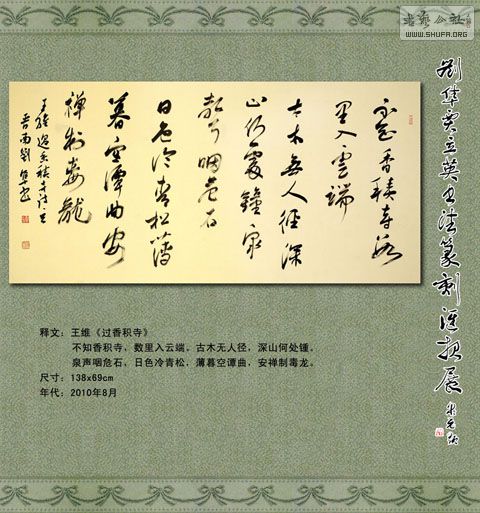 书艺公社
WWW.SHUFA.ORG
劉华贾立英书法篆刻汇报展
不知香積寺数
里入雲端
古木無人徑深
山何處鐘泉
声咽危石
日色冷青松薄
暮空潭曲安
禅制毒龍
王維過香積寺詩
晋南劉華书
释文：王维《过香积寺》
不知香积寺，数里入云端。古木无人径，深山何处锺。
泉声咽危石，日色冷青松。薄暮空谭曲，安禅制毒龙。
尺寸：138x69cm
年代：2010年8月